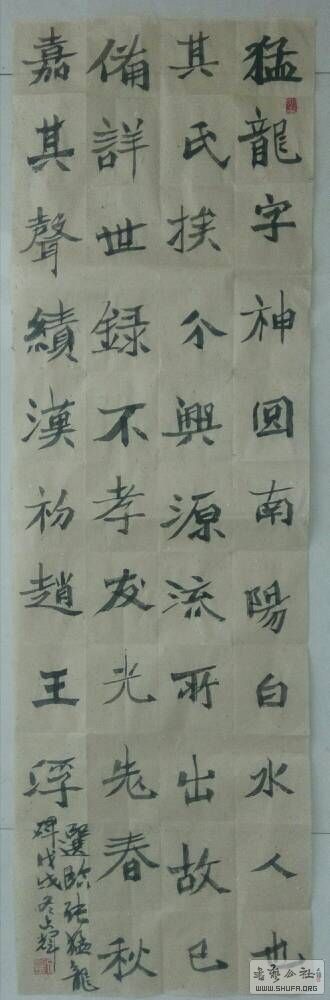 猛龍字神回南陽白水人也
其氏族分興源流所出故已
備詳世録不孝友光先春秋
嘉其聲績漢初趙王浮
選臨張猛龍
碑戊戌冬輝
书艺公社
WWW.SHUFA.ORG